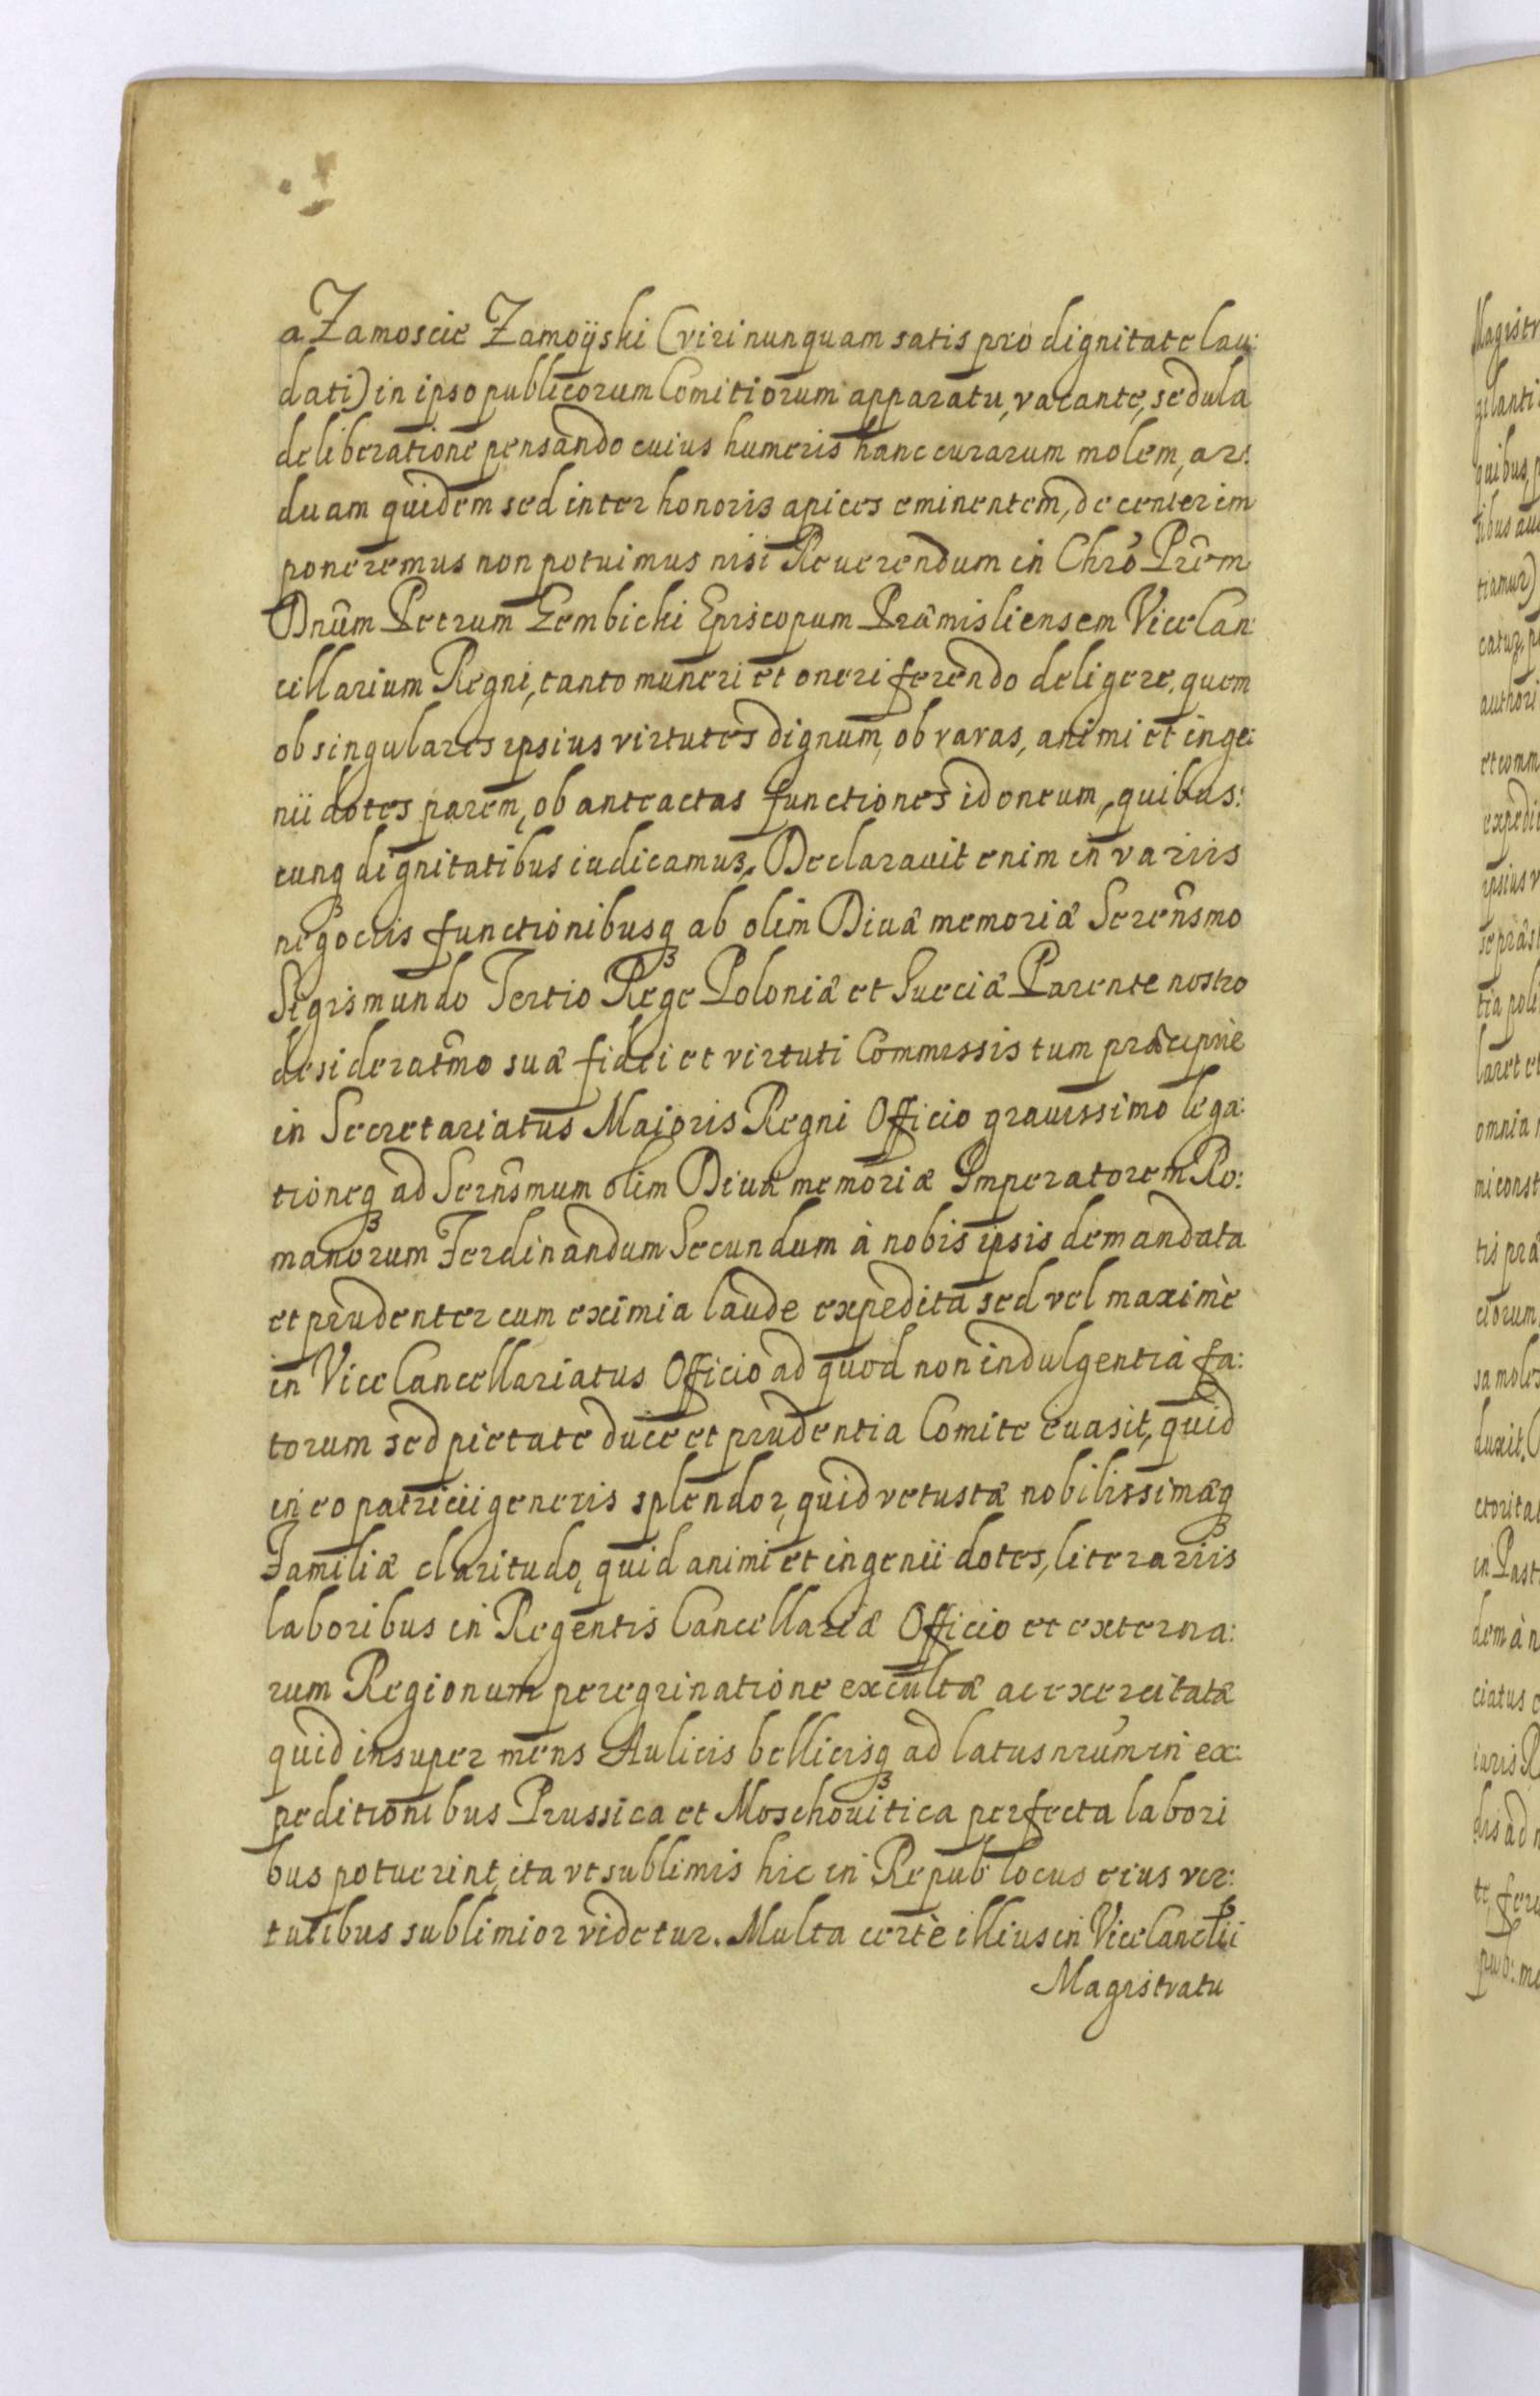 a Zamoscie Zamoÿski (viri nunquam satis pro dignitate lau:
dati) in ipso publicorum Comitiorum apparatu, vacante, sedula
deliberatione pensando cuius humeris hanc curarum molem, ar:
duam quidem sed inter honoris apices eminentem, decenter im
poneremus non potuimus nisi Reuerendum in Chrõ Prẽm
Dnũm Petrum Gembicki Episcopum Præmisliensem ViceCan:
cellarium Regni, tanto muneri et oneri ferendo deligere, quem
ob singulares ipsius virtutes dignum, ob raras, animi et inge:
nii dotes parem, ob anteactas functiones idoneum, quibus:
cunq3 dignitatibus iudicamus. Declarauit enim in variis
negociis functionibusq3 ab olim Diuæ memoriæ Serẽnsmo
Sigismundo Tertio Rege Poloniæ et Sueciæ Parente nostro
desideratm̃o suæ fidei et virtuti Commissis tum præcipuè
in Secretariatus Maioris Regni Officio grauissimo lega:
tioneq3 ad Serns̃mum olim Diuæ memoriæ Imperatorem Ro:
manorum Ferdinandum Secundum à nobis ipsis demandata
et prudenter cum eximia laude expedita sed vel maximè
in ViceCancellariatus Officio ad quod non indulgentia fa:
torum sed pietate duce et prudentia Comite euasit, quid
in eo patricii generis splendor, quid vetustæ nobilissimæq3
Familiæ claritudo, quid animi et ingenii dotes, literariis
laboribus in Regentis Cancellariæ Officio et externa:
rum Regionum peregrinatione excultæ ac exercitatæ
quid insuper mens Aulicis bellicisq3 ad latus nrũm in ex:
peditionibus Prussica et Moschouitica perfecta labori
bus potuerint, ita vt sublimis hic in Repub: locus eius vir:
tutibus sublimior videtur. Multa certè illius in ViceCancllii
Magistratu